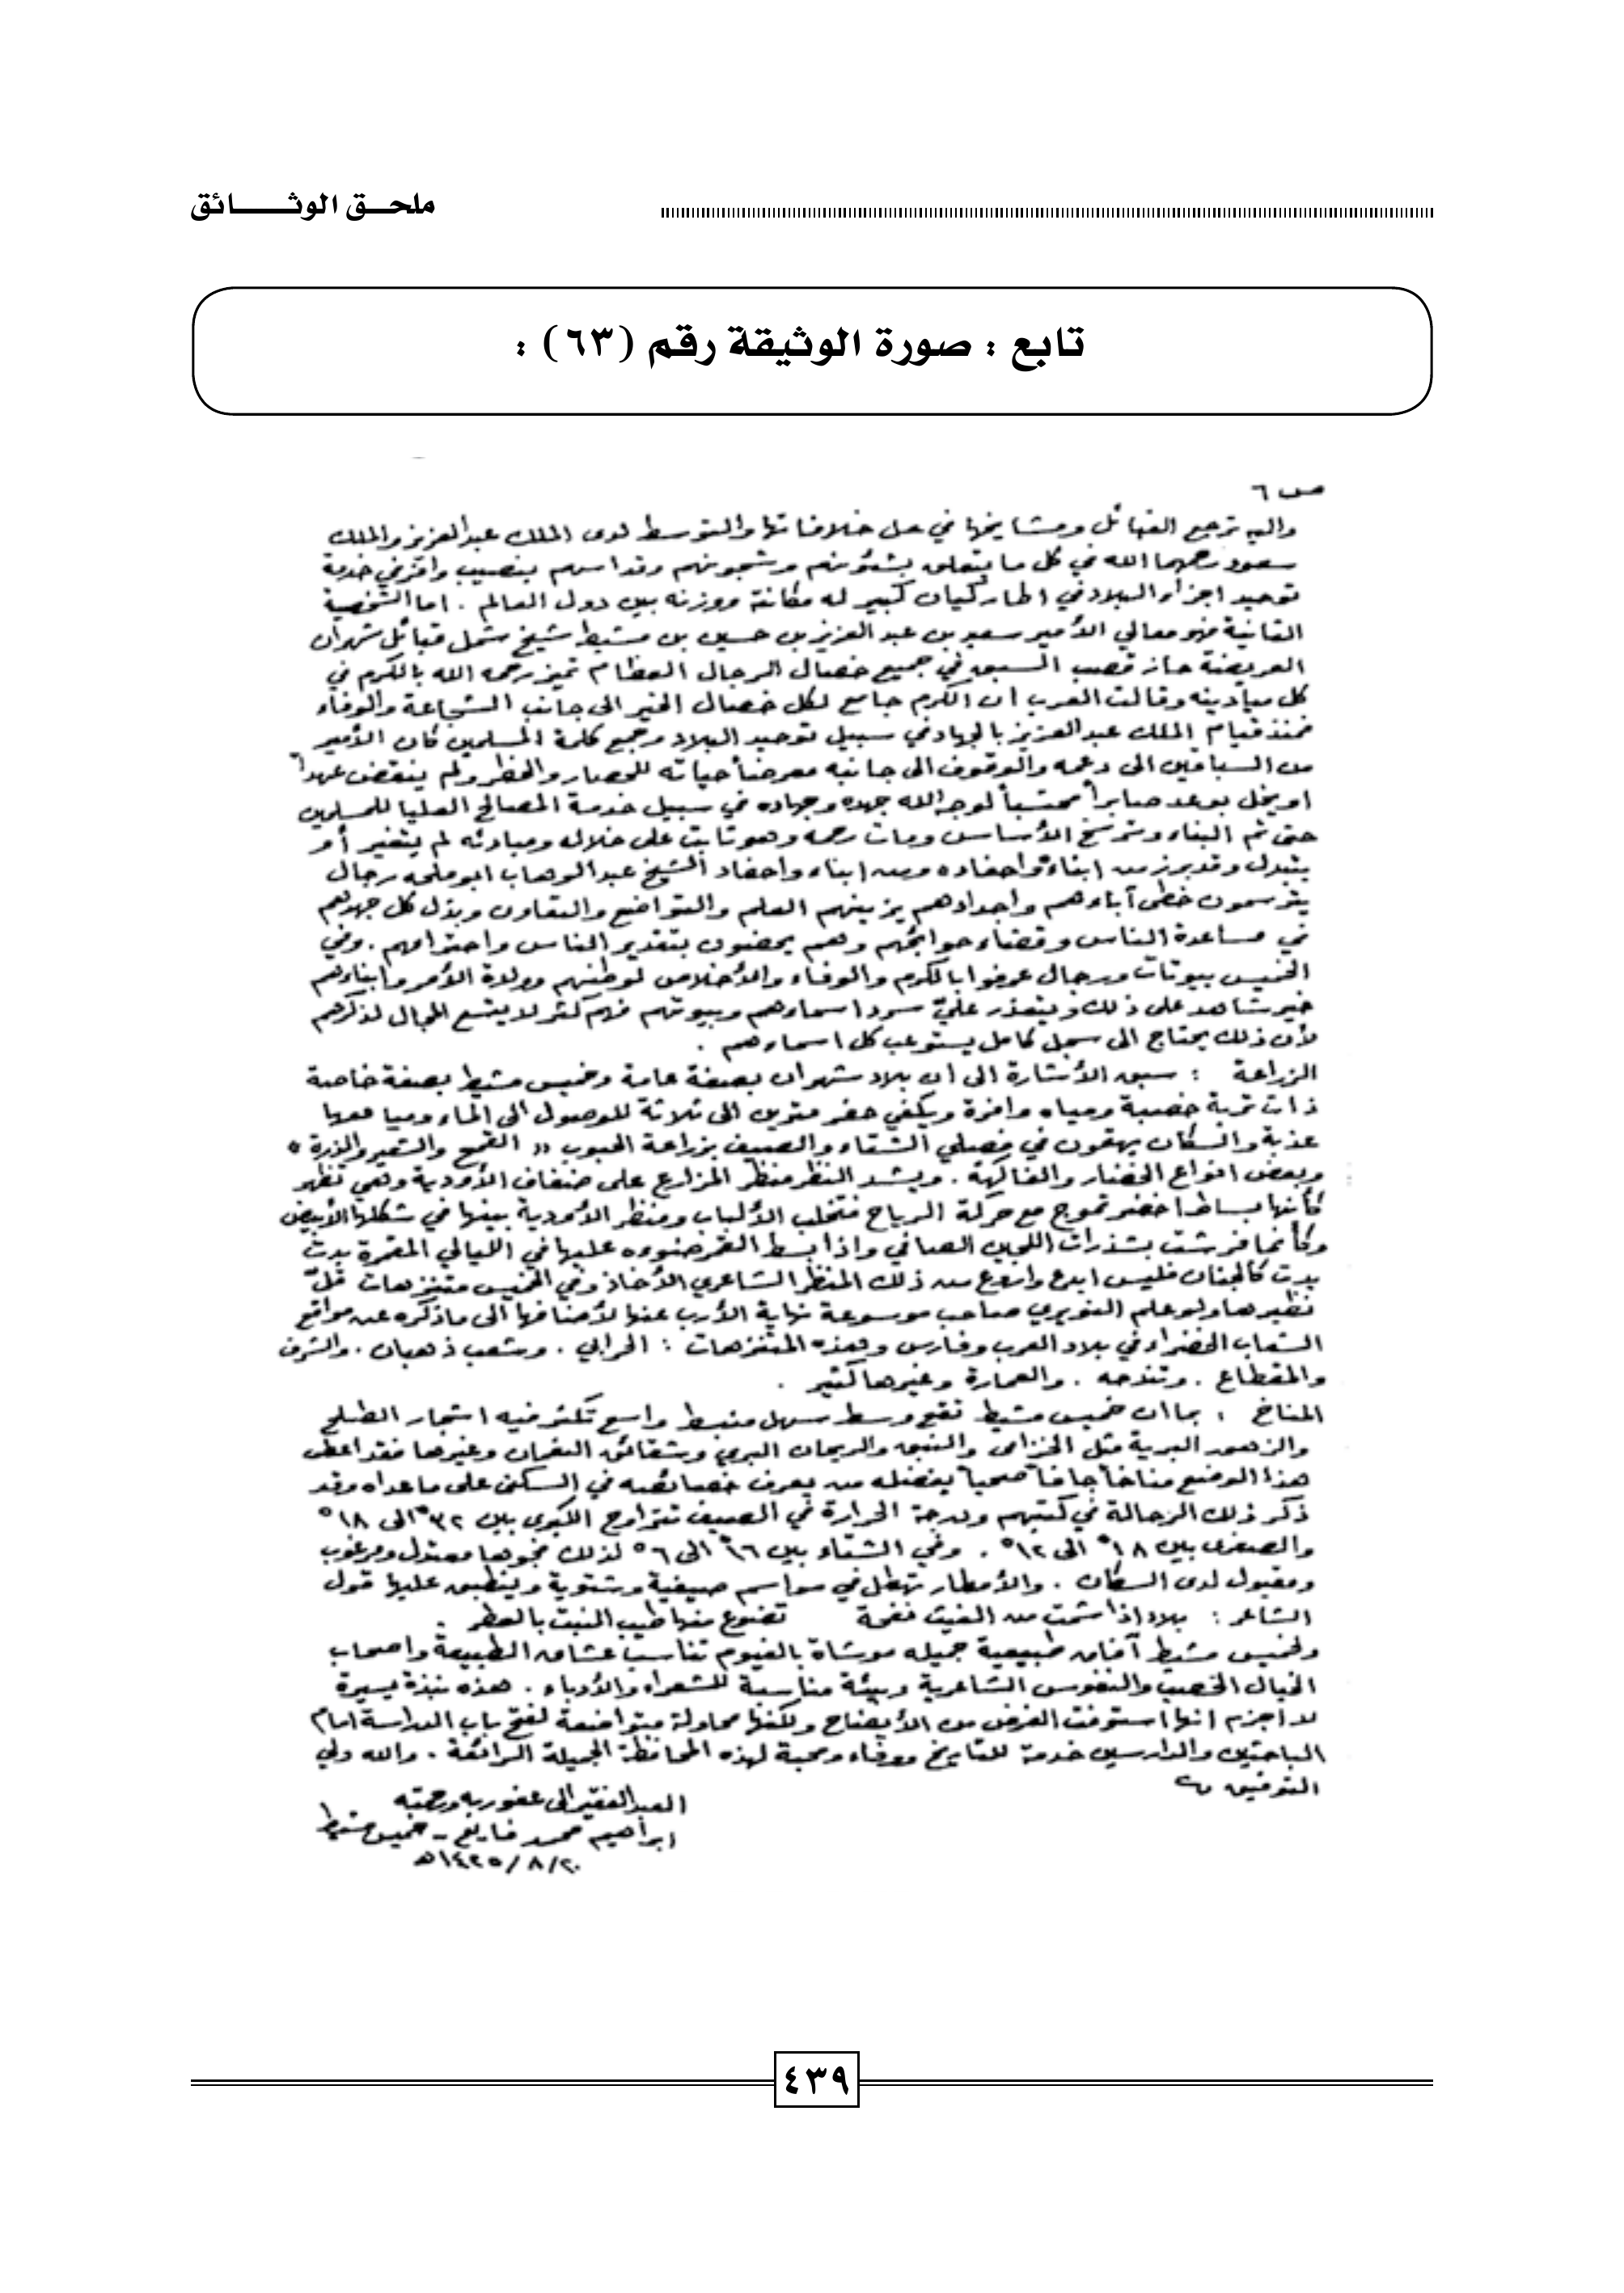 ملحـــق الوثـــــــائق
تابع : صورة الوثيقة رقم (٦٣) :
ص ٦
واليه ترجع القبائل ومشايخها في حل خلافاتها والتوسط لدى الملك عبدالعزيز والملك
سعود رحمهما الله في كل ما يتعلق بشئونهم وشجونهم وقد اسهم بنصيب وافر في خدمة
توحيد اجزاء البلاد في اطار كيان كبير له مكانة ووزنه بين دول العالم . اما الشخصية
الثانية فهو معالي الأمير سعيد بن عبد العزيز بن حسين بن مشيط شيخ شمل قبائل شهران
العريضة حاز قصب السبق في جميع خصال الرجال العظام تميز رحمه الله بالكرم في
كل ميادينه وقالت العرب ان الكرم جامع لكل خصال الخير الى جانب الشجاعة والوفاء
فمنذ قيام الملك عبدالعزيز بالجهاد في سبيل توحيد البلاد وجمع كلمة المسلمين كان الأمير
من السباقين الى دعمه والوقوف الى جانبه معرضاً حياته للحصار والخطر ولم ينقض عهداً
او يخل بوعد صابراً محتسباً لوجه الله جهده وجهاده في سبيل خدمة المصالح العليا للمسلمين
حتى تم البناء وترسخ الأساس ومات رحمه وهو ثابت على خلاله ومبادئه لم يتغير أو
يتبدل وقد برز من ابناءه واحفاده ومن ابناء واحفاد الشيخ عبدالوهاب ابوملحه رجال
يترسمون خطى آباءهم واجدادهم يزينهم العلم والتواضع والتعاون وبذل كل جهودهم
في مساعدة الناس وقضاء حوائجهم وهم يحضون بتقدير الناس واحترامهم . وفي
الخميس بيوتات ورجال عرفوا بالكرم والوفاء والأخلاص لوطنهم وولاة الأمر وابناءهم
خير شاهد على ذلك ويتعذر عليّ سرد اسماءهم وبيوتهم فهم كثر لا يتسع المجال لذكرهم
لأن ذلك يحتاج الى سجل كامل يستوعب كل اسماءهم .
الزراعة : سبق الأشارة الى ان بلاد شهران بصفة عامة وخميس مشيط بصفة خاصة
ذات تربة خصبة ومياه وافرة ويكفي حفر مترين الى ثلاثة للوصول الى الماء ومياهها
عذبة والسكان يهتمون في فصلي الشتاء والصيف بزراعة الحبوب (( القمح والشعير والذرة ))
وبعض انواع الخضار والفاكهة . ويشد النظر منظر المزارع على ضفاف الأودية وهي تظهر
كأنها بساط اخضر تموج مع حركة الرياح فتخلب الألباب ومنظر الأودية بينها في شكلها الأبيض
وكأنما فرشت بشذرات اللجين الصافي واذا بسط القمر ضوءه عليها في الليالي المقمرة بدت
بدت كالجنان فليس ابدع واروع من ذلك المنظر الشاعري الأخاذ وفي الخميس متنزهات قلّ
نظيرها ولو علم النويري صاحب موسوعة نهاية الأرب عنها لأضافها الى ماذكره عن مواقع
الشعاب الخضراء في بلاد العرب وفارس وهذه المتنزهات : الحرابي . وشعب ذهبان . والشرف
والمقطاع . وتندحه . والعمارة وغيرها كثير .
المناخ : بما ان خميس مشيط تقع وسط سهل منبسط واسع تكثر فيه اشجار الطلح
والزهور البرية مثل الخزامى والنبق والريحان البري وشقائق النعمان وغيرها فقد اعطى
هذا الوضع مناخاً جافاً صحياً يفضله من يعرف خصائصه في السكن على ماعداه وقد
ذكر ذلك الرحالة في كتبهم ودرجة الحرارة في الصيف تتراوح الكبرى بين ٣٢° الى ١٨°
والصغرى بين ١٨° الى ١٢° . وفي الشتاء بين ١٦° الى ٦° لذلك فجوها معتدل ومرغوب
ومقبول لدى السكان . والأمطار تهطل في مواسم صيفية وشتوية وينطبق عليها قول
الشاعر : بلاد اذا شمت من الغيث نفحة تضوع منها طيب النبت بالعطر .
ولخميس مشيط آفاق طبيعية جميله موشاة بالغيوم تناسب عشاق الطبيعة واصحاب
الخيال الخصب والنفوس الشاعرية وبيئة مناسبة للشعراء والأدباء . هذه نبذة يسيرة
لا اجزم انها استوفت الغرض من الأيضاح ولكنها محاولة متواضعة لفتح باب الدراسة امام
الباحثين والدارسين خدمة للتاريخ ووفاء ومحبة لهذه المحافظة الجميلة الرائعة . والله ولي
التوفيق
العبد الفقير الى عفو ربه ورحمته
ابراهيم محمد فايع - خميس مشيط
٢٠/٨/١٤٢٥هـ
٤٣٩